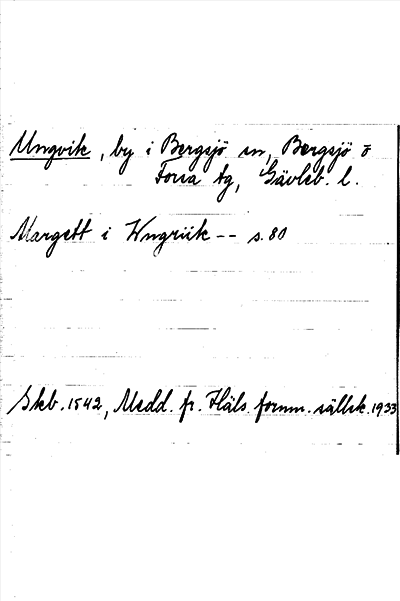 Ungvik, by i Bergsjö sn, Bergsjö o
Forsa tg, Gävleb. l.
Margett i Wngwiik -- s. 80
Skb. 1542, Medd. fr. Häls. fornm. sällsk. 1933